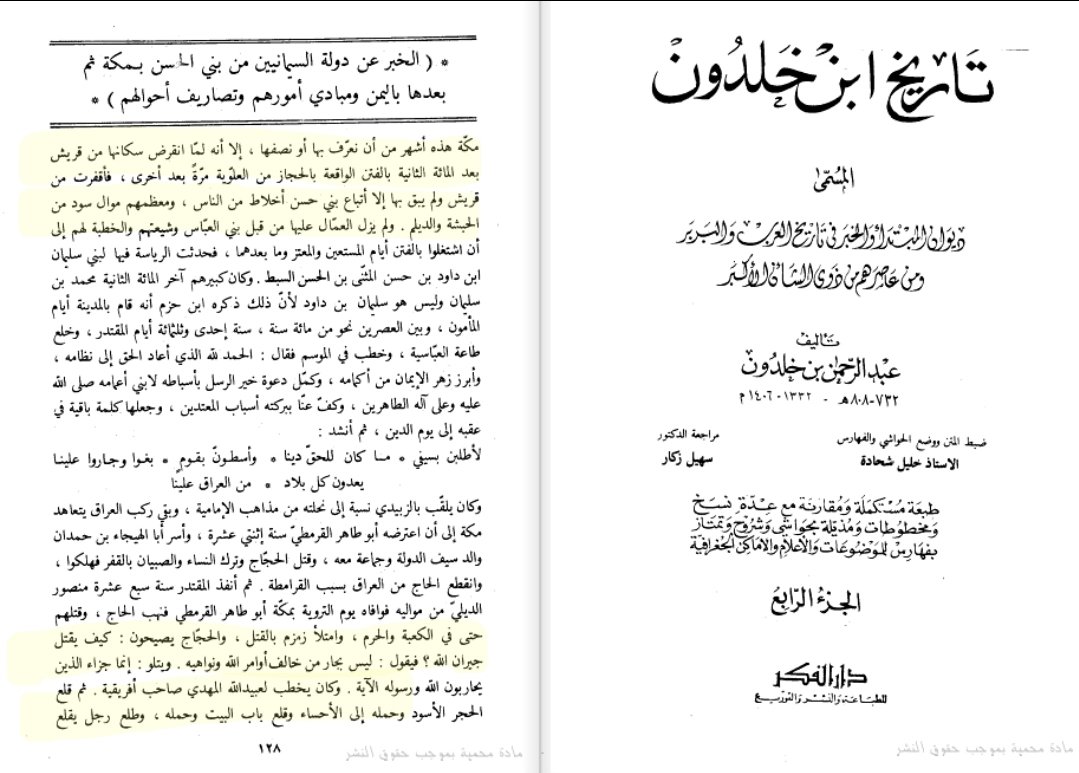 تاريخ ابن خلدون
المسمى
ديوان المبتدأ والخبر في تاريخ العرب والبربر
ومن عاصرهم من ذوي الشأن الأكبر
تأليف
عبد الرحمن بن خلدون
٧٣٢-٨٠٨هـ - ١٣٣٢-١٤٠٦ م
ضبط المتن ووضع الحواشي والفهارس
الاستاذ خليل شحادة
مراجعة الدكتور
سهيل زكار
طبعة مستكملة ومقارنة مع عدة نسخ
ومخطوطات ومذيلة بحواشي وشروح وتمتاز
بفهارس للموضوعات والأعلام والأماكن الجغرافية
الجزء الرابع
دار الفكر
للطباعة والنشر والتوزيع
مادة محمية بموجب حقوق النشر
* ( الخبر عن دولة السيمانيين من بني الحسن بمكة ثم
بعدها باليمن ومبادي أمورهم وتصاريف أحوالهم ) *
مكّة هذه أشهر من أن نعرّف بها أو نصفها ، إلا أنه لمّا انقرض سكانها من قريش
بعد المائة الثانية بالفتن الواقعة بالحجاز من العلوية مرّةً بعد أخرى ، فأقفرت من
قريش ولم يبق بها إلا أتباع بني حسن أخلاط من الناس ، ومعظمهم موال سود من
الحبشة والديلم . ولم يزل العمّال عليها من قبل بني العبّاس وشيعتهم والخطبة لهم إلى
أن اشتغلوا بالفتن أيام المستعين والمعتز وما بعدهما ، فحدثت الرياسة فيها لبني سليمان
ابن داود بن حسن المثنّى بن الحسن السبط . وكان كبيرهم آخر المائة الثانية محمد بن
سليمان وليس هو سليمان بن داود لأنّ ذلك ذكره ابن حزم أنه قام بالمدينة أيام
المأمون ، وبين العصرين نحو من مائة سنة ، سنة إحدى وثلثمائة أيام المقتدر ، وخلع
طاعة العبّاسية ، وخطب في الموسم فقال : الحمد لله الذي أعاد الحق إلى نظامه ،
وأبرز زهر الإيمان من أكمامه ، وكمّل دعوة خير الرسل بأسباطه لابني أعمامه صلى الله
عليه وعلى آله الطاهرين ، وكفّ عنّا ببركته أسباب المعتدين ، وجعلها كلمة باقية في
عقبه إلى يوم الدين ، ثم أنشد :
لأطلبن بسيفي * مـا كان للحقّ دينا * وأسطونّ بقوم * بغوا وجـاروا علينـا
يعدون كل بلاد * من العراق علينا
وكان يلقّب بالزبيدي نسبة إلى نحلته من مذاهب الإمامية ، وبقي ركب العراق يتعاهد
مكة إلى أن اعترضه أبو طاهر القرمطيّ سنة إثنتي عشرة ، وأسر أبا الهيجاء بن حمدان
والد سيف الدولة وجماعة معه ، وقتل الحجّاج وترك النساء والصبيان بالقفر فهلكوا ،
وانقطع الحاج من العراق بسبب القرامطة . ثم أنفذ المقتدر سنة سبع عشرة منصور
الديليّ من مواليه فوافاه يوم التروية بمكّة أبو طاهر القرمطي فنهب الحاج ، وقتلهم
حتى في الكعبة والحرم ، وامتلأ زمزم بالقتل ، والحجّاج يصيحون : كيف يقتل
جيران الله ؟ فيقول : ليس بجار من خالف أوامر الله ونواهيه . ويتلو : إنما جزاء الذين
يحاربون الله ورسوله الآية . وكان يخطب لعبيدالله المهدي صاحب أفريقية . ثم قلع
الحجر الأسود وحمله إلى الأحساء وقلع باب البيت وحمله ، وطلع رجل يقلع
١٢٨
مادة محمية بموجب حقوق النشر